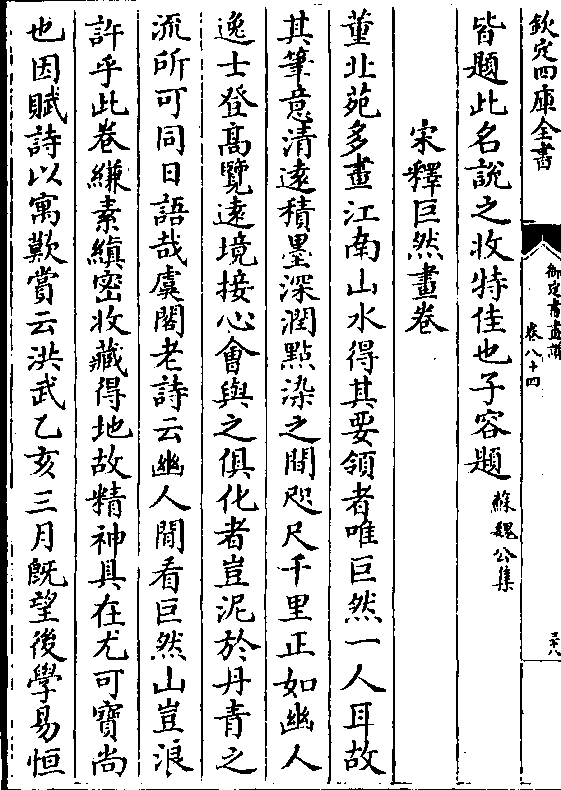 欽定四庫全書
御定書畫譜
卷八十四
三十八
皆題此名說之收特佳也子容題蘇魏公集
宋釋巨然畫卷
董北苑多畫江南山水得其要領者唯巨然一人耳故
其筆意清遠積墨深潤點染之間咫尺千里正如幽人
逸士登高覽遠境接心會與之俱化者豈泥於丹青之
流所可同日語哉虞閣老詩云幽人閒看巨然山豈浪
許乎此卷縑素縝密收藏得地故精神具在尤可寶尚
也因賦詩以寓歎賞云洪武乙亥三月既望後學易恒